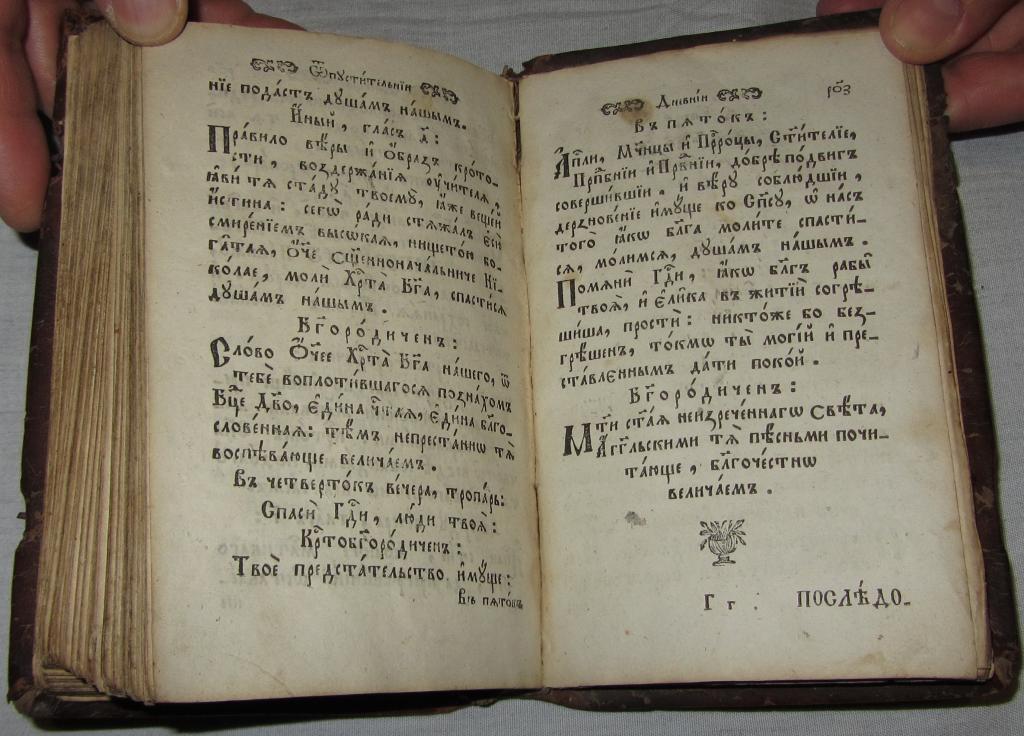 Ѿпустителніи
нїе подастъ дꙋшамъ нашымъ.
Иный, гласъ д҃:
Правило вѣры и ѻбразъ крото-
сти, воздержанїѧ оучителѧ,
ꙗви тѧ стадꙋ твоемꙋ, ꙗже вещей
истина: сегѡ ради стѧжалъ еси
смиренїемъ высѡкаѧ, нищетою бо-
гатаѧ, ѻтче сщ҃енноначалниче Ни-
колае, моли Хр҃та Бг҃а, спастисѧ
дꙋшамъ нашымъ.
Бг҃ородиченъ:
Слово Ѻчее Хр҃та Бг҃а нашего, ѿ
тебе воплотившагосѧ познахомъ
Бц҃е Дв҃о, едина чт҃аѧ, едина бл҃го-
словеннаѧ: тѣмъ непрестаннѡ тѧ
воспѣвающе величаемъ.
Въ четвертокъ вечера, тропарь:
Спаси Гд҃и, люди твоѧ:
Кр҃тобг҃ородиченъ:
Твое предстательство имꙋще:
Въ пѧтокъ
Дневнїи
Въ пѧтокъ:
Ап҃ли, Мч҃нцы и Прⷪ҇роцы, Ст҃ителїе,
Прпⷣбнїи и Првⷣнїи, добрѣ подвигъ
совершившїи. и вѣрꙋ соблюдшїи,
дерзновенїе имꙋще ко Сп҃сꙋ, ѡ насъ
того ꙗкѡ бл҃га молите спасти-
сѧ, молимсѧ, дꙋшамъ нашымъ.
Помѧни Гд҃и, ꙗкѡ бл҃гъ рабы
твоѧ, и елика въ житїи согрѣ-
шиша, прости: никтоже бо без-
грѣшенъ, токмѡ ты могїй и пре-
ставленнымъ дати покой.
Бг҃ородиченъ:
Мт҃и ст҃аѧ неизреченнагѡ свѣта,
Агг҃льскими тѧ пѣсньми почи-
тающе, бл҃гочестнѡ
величаемъ.
Гг. ПОСЛѢДО-